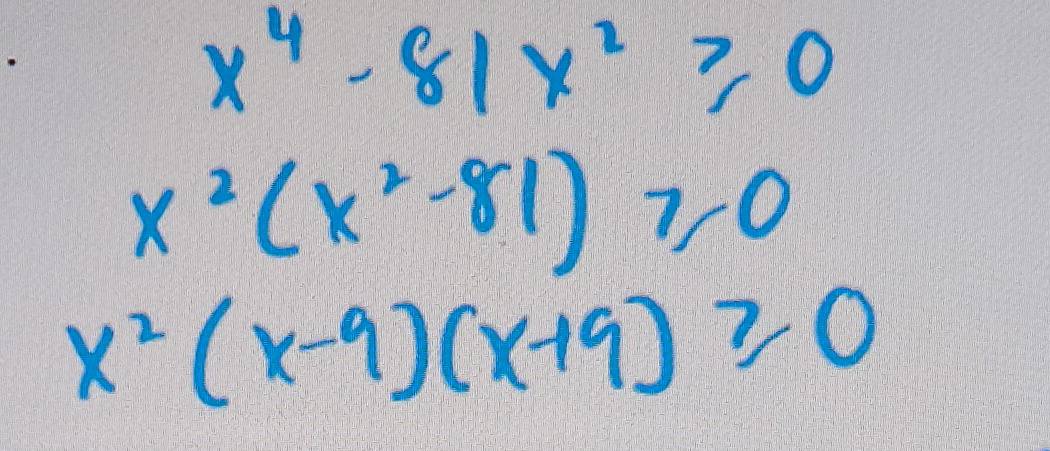 x⁴ - 81x² ⩾ 0
x²(x² - 81) ⩾ 0
x²(x-9)(x+9) ⩾ 0